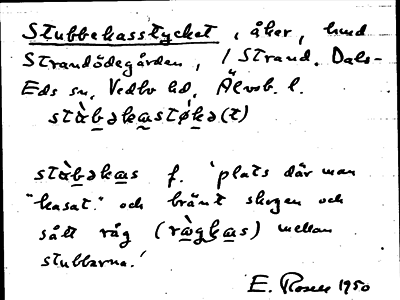 Stubbekasstycket, åker, hmd
Strandödegården, 1 Strand. Dals-
Eds sn, Vedbo hd, Älvsb. l.
stàb̲əka̲støk̲ə(t)
stàb̲əka̲s f. 'plats där man
"kasat" och bränt skogen och
sått råg (rågka̲s) mellan
stubbarna.'
E. Rosell 1950